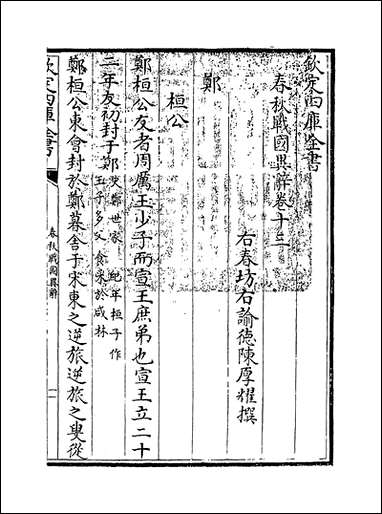 欽定四庫全書
春秋戰國異辭卷十三
右春坊右諭德陳厚耀撰
鄭
桓公
鄭桓公友者周厲王少子而宣王庶弟也宣王立二十
二年友初封于鄭史鄭世家 紀年桓子作
王子多父食采於咸林
鄭桓公東會封於鄭暮舍于宋東之逆旅逆旅之叟從
欽定四庫全書
春秋戰國異辭
一